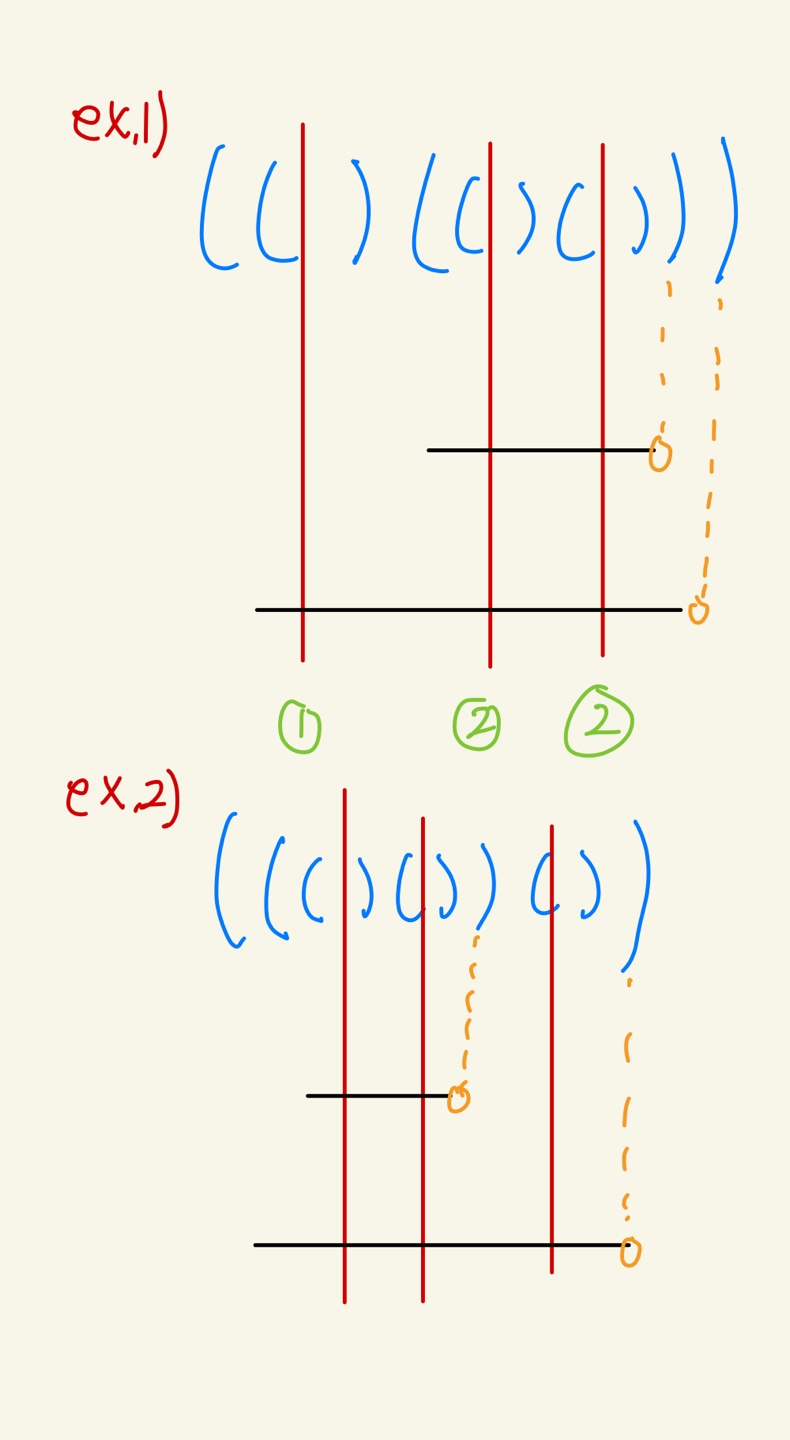 ex.1)
(()(()()))
① ② ②
ex.2)
((()())())